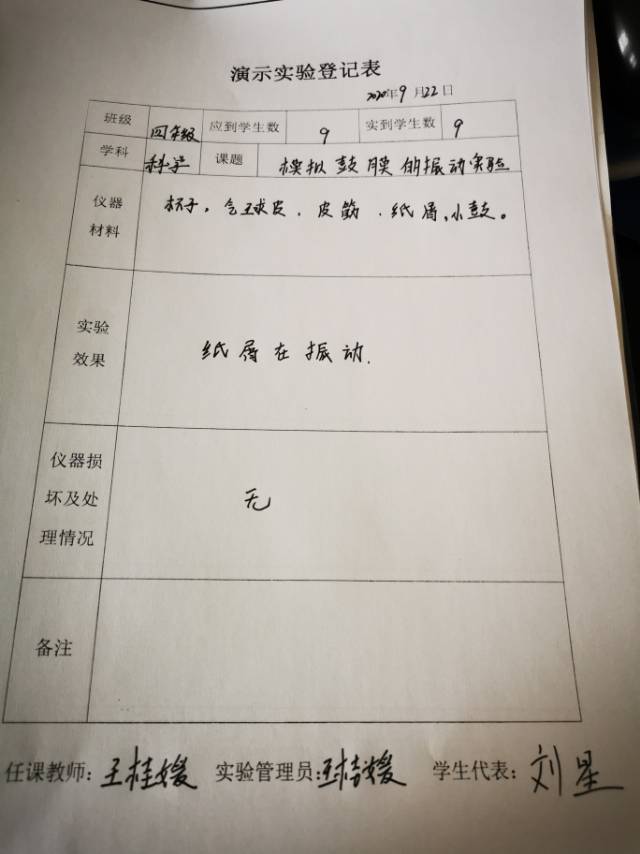 演示实验登记表
2020年9月22日
班级 四年级 应到学生数 9 实到学生数 9
学科 科学 课题 模拟鼓膜的振动实验
仪器材料 杯子,气球皮,皮筋、纸屑,小鼓。
实验效果 纸屑在振动.
仪器损坏及处理情况 无
备注
任课教师:王桂媛 实验管理员:王桂媛 学生代表:刘星